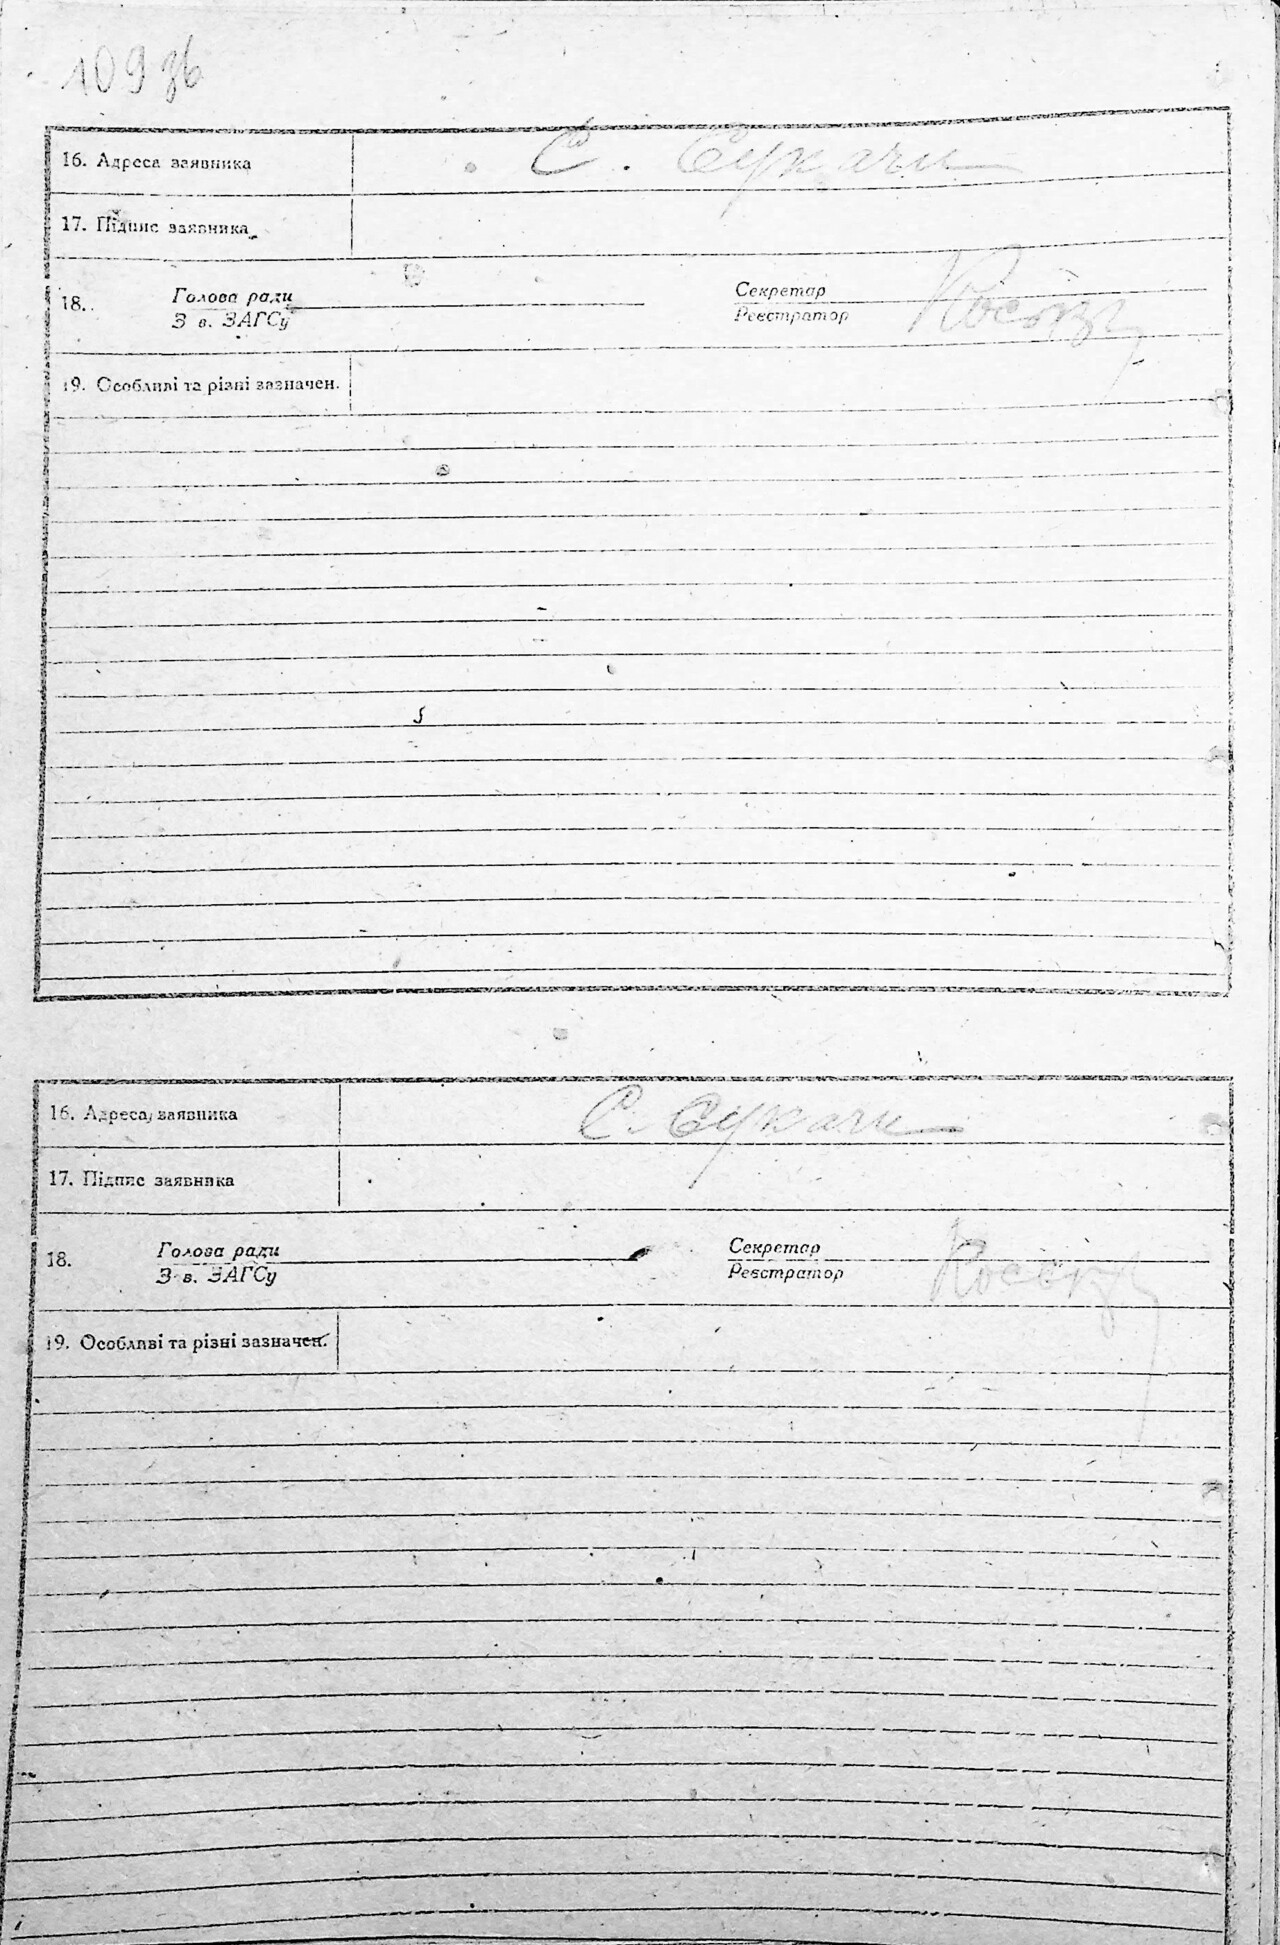 109 зв
16. Адреса заявника С. Сукачи
17. Підпис заявника
18. Голова ради Секретар
З в. ЗАГСу Реєстратор
19. Особливі та різні зазначен.
16. Адреса заявника С. Сукачи
17. Підпис заявника
18. Голова ради Секретар
З в. ЗАГСу Реєстратор
19. Особливі та різні зазначен.